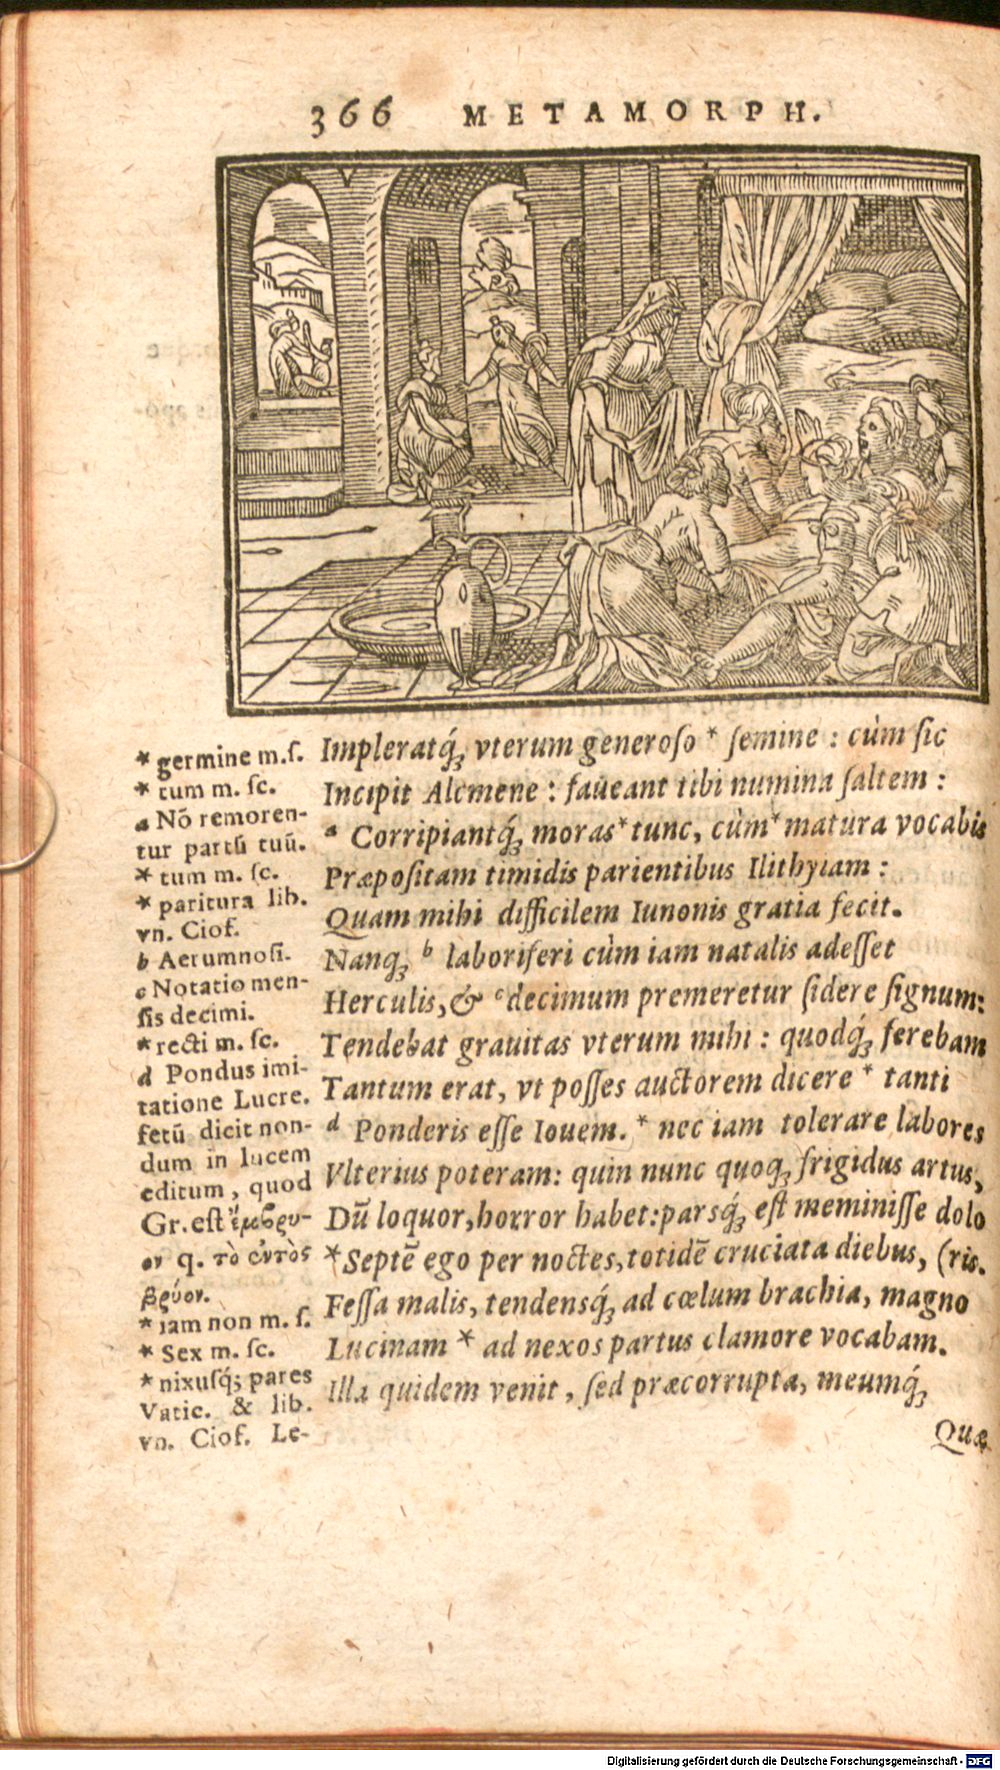 366 METAMORPH.
* germine m.ſ.
* tum m. ſc.
a Nō remoren-
tur partū tuū.
* tum m. ſc.
* paritura lib.
vn. Ciof.
b Aerumnoſi.
c Notatio men-
ſis decimi.
* recti m. ſc.
d Pondus imi-
tatione Lucre.
fetū dicit non-
dum in lucem
editum, quod
Gr. eſt ἔμβρυ-
ον q. τὸ ἐντὸς
βρύον.
* iam non m. ſ.
* Sex m. ſc.
* nixuſq́; pares
Vatic. & lib.
vn. Ciof. Le-
Impleratq́; vterum generoſo * ſemine : cùm ſic
Incipit Alcmene : faueant tibi numina ſaltem :
a Corripiantq́; moras * tunc, cùm * matura vocabis
Præpoſitam timidis parientibus Ilithyiam :
Quam mihi difficilem Iunonis gratia fecit.
Nanq; b laboriferi cùm iam natalis adeſſet
Herculis, & c decimum premeretur ſidere ſignum:
Tendebat grauitas vterum mihi : quodq́; ferebam
Tantum erat, vt poſſes auctorem dicere * tanti
d Ponderis eſſe Iouem. * nec iam tolerare labores
Vlterius poteram: quin nunc quoq; frigidus artus,
Dū loquor, horror habet: parsq́; eſt meminiſſe dolo
* Septē ego per noctes, totidē cruciata diebus, (ris.
Feſſa malis, tendensq́; ad cœlum brachia, magno
Lucinam * ad nexos partus clamore vocabam.
Illa quidem venit, ſed præcorrupta, meumq́;
Quæ
Digitalisierung gefördert durch die Deutsche Forschungsgemeinschaft - DFG